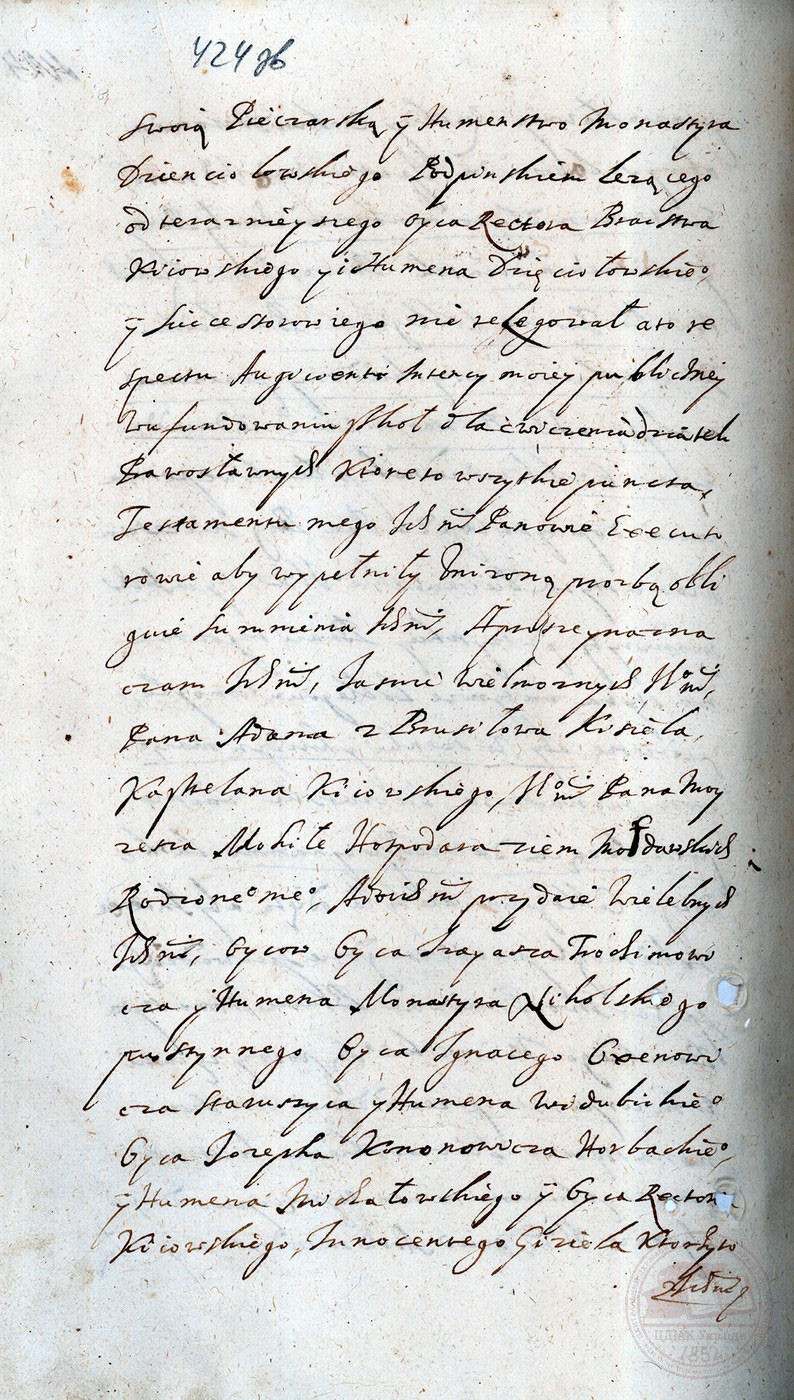 424 зв
swoią Pieczarską y Humenstwo Monastyra
Dzienciołowskiego Podpinskiem leżącego
od teraznieyszego oyca Rectora Bractwa
Kiiowskiego y iHumena Dzięciołowskie°,
y Successorow iego nie relegował a to re
spectu Augmenti Intency moiey publiczney
Wufundowaniu szkoł dla ćwiczenia dziatek
Prawosławnych Ktore to wszytkie puncta,
Testamentu mego Ich mć Panowie Executo
rowie aby wypełnily Unizoną prozbą obli
guię Sumnienia Ich mć, A proszę y naczna
czam Ich mć, Jasnie wielmoznych
Pana Adama z Brusiłowa Kisiela,
Kasztelana Kiiowskiego, Pana Moy
zesza Mohiłe Hospodara ziem Mołdawskich
Rodzone° me°, Adoich mć przydaię Wielebnych
Ich mć, Oycow Oyca Izayasza Trochimowi
cza yHumena Monastyra Nicholskiego
pustynnego Oyca Ignacego Oxenowi
cza Staruszyca yHumena Widubickie°
Oyca Jozepha Kononowicza Horbackie°,
y Humena Michałowskiego y Oyca Rectora
Kiiowskiego, Innocentego Giziela Ktorzy to
Ich mć
ЦДІАК України
1852